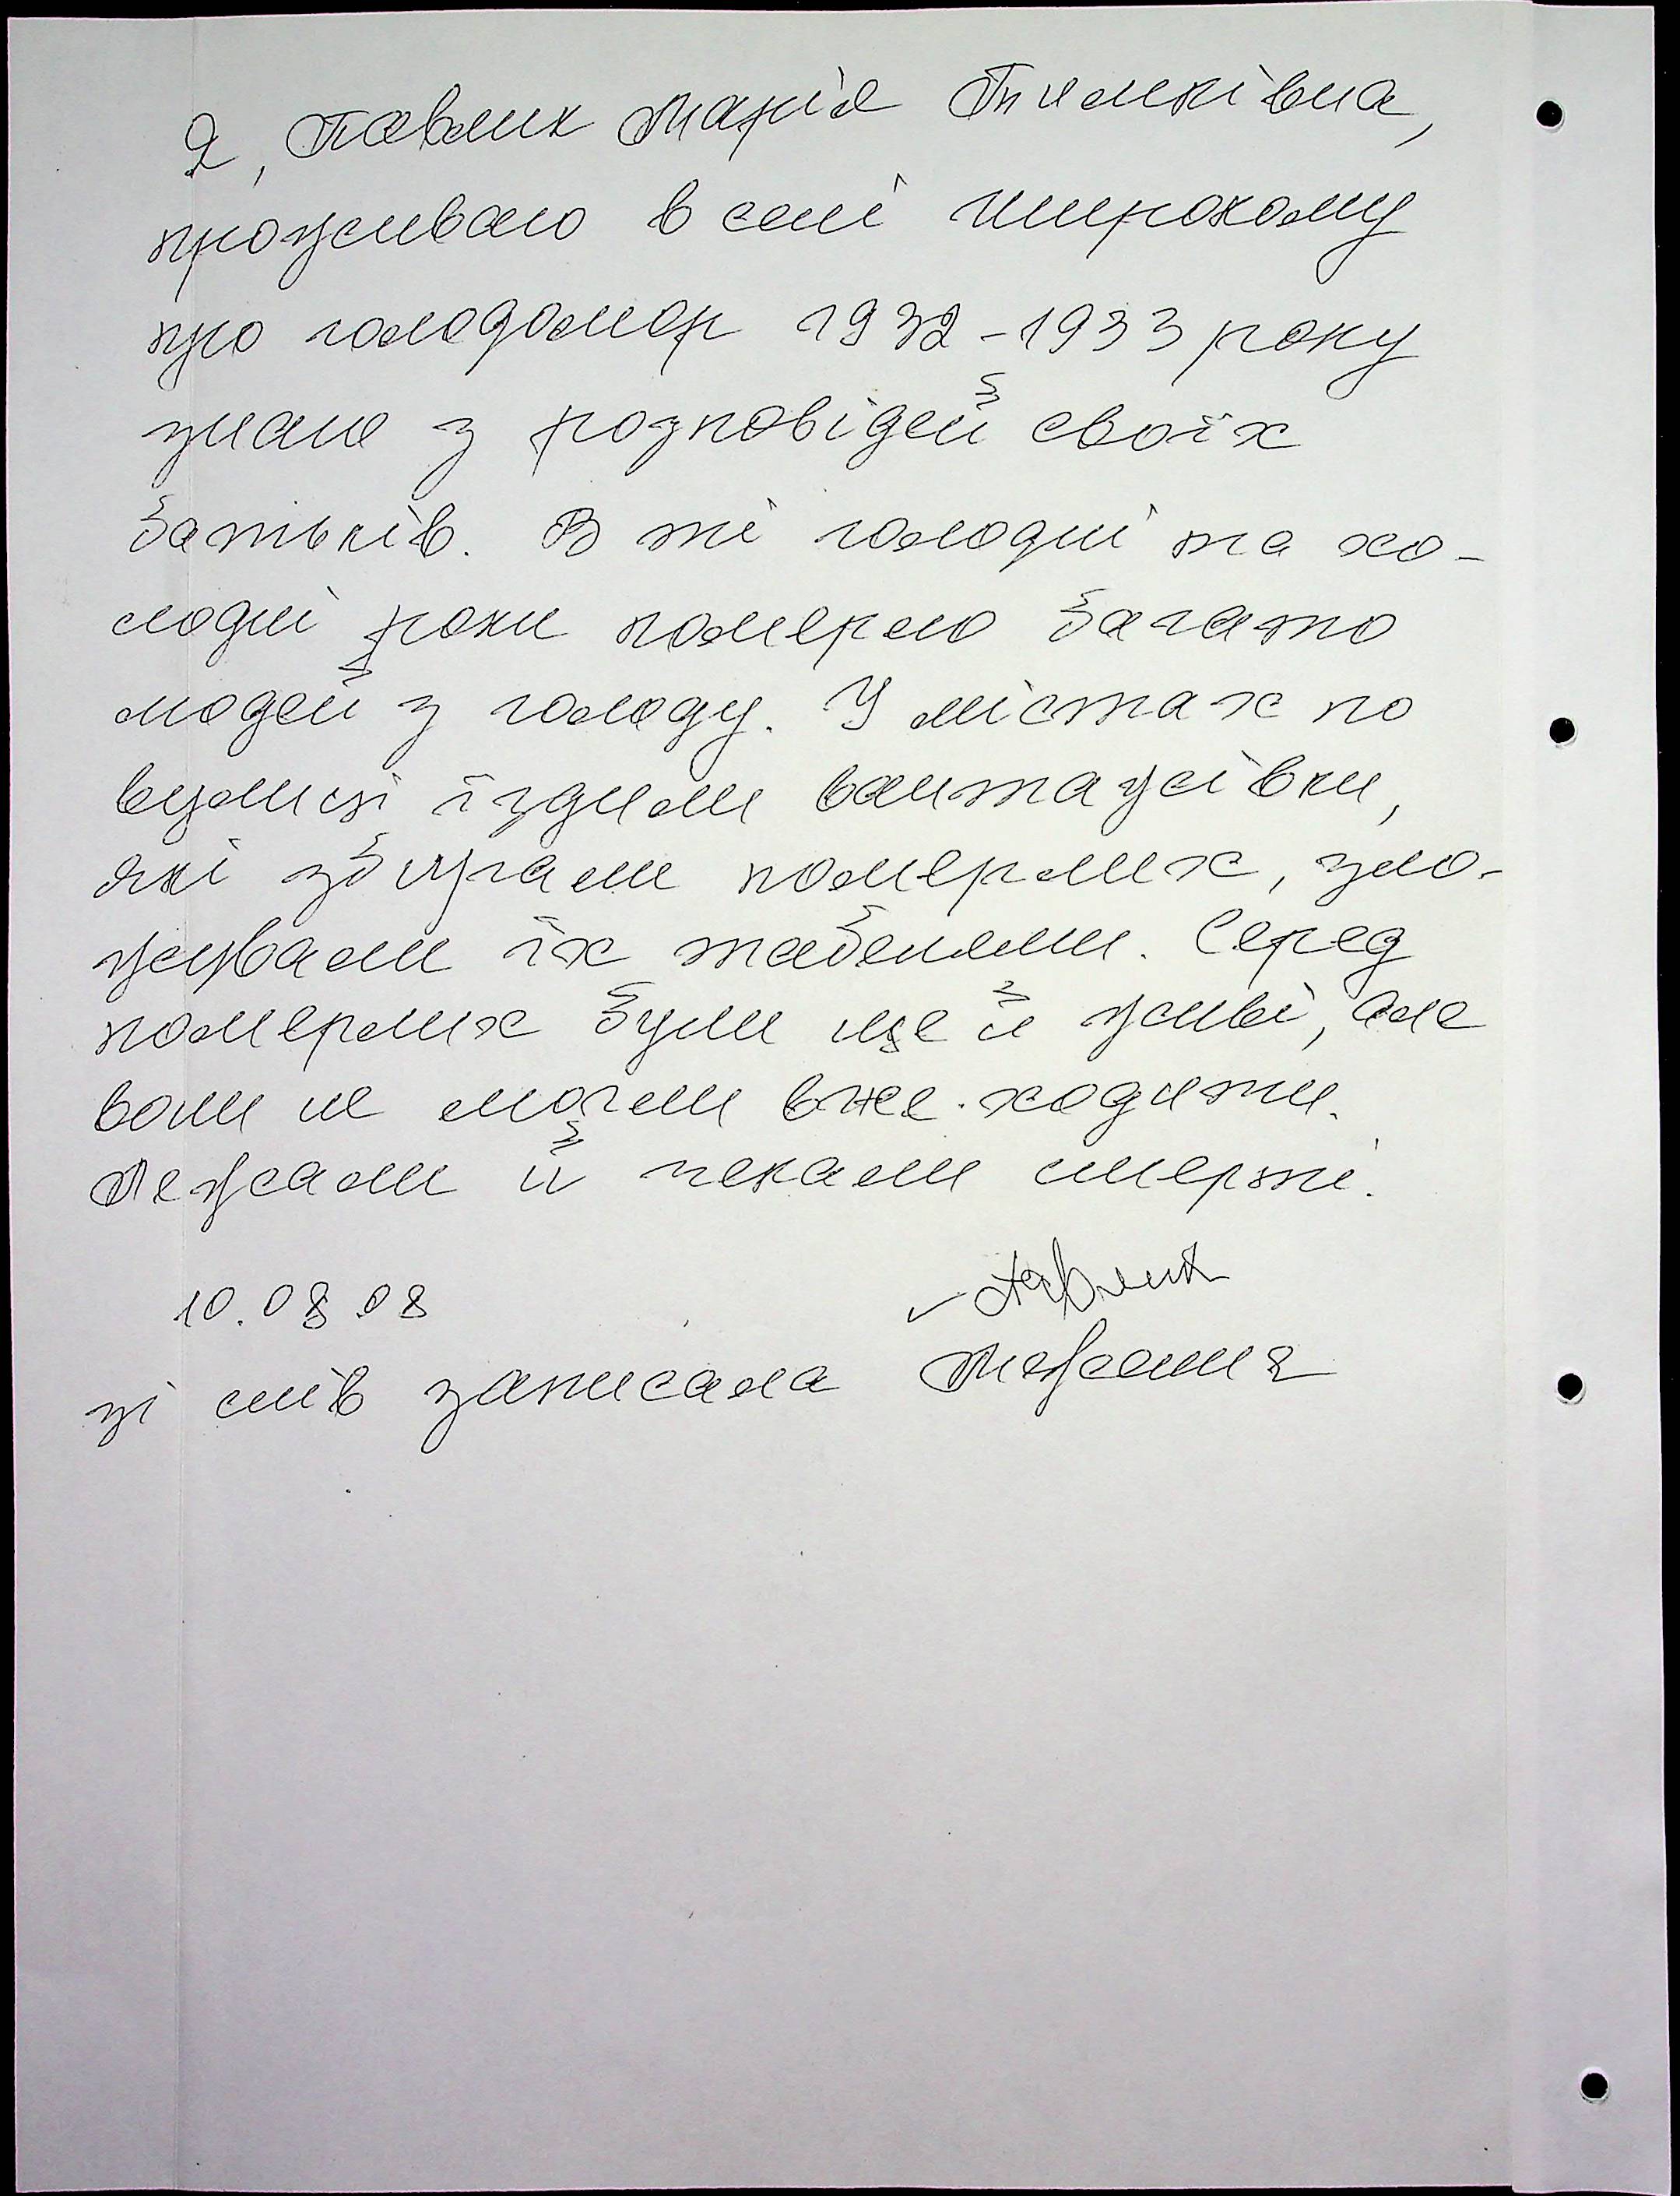 Я, Павлик Марія Тимківна,
проживаю в селі Широкому
про голодомор 1932-1933 року
знаю з розповідей своїх
батьків. В ті голодні та хо-
лодні роки померло багато
людей з голоду. У містах по
вулиці їздили вантажівки,
які збирали померлих, зло-
жували їх штабелями. Серед
померлих були ще й живі, але
вони не могли вже ходити.
Лежали й чекали смерті.
10.08.08 Павлик
зі слів записала